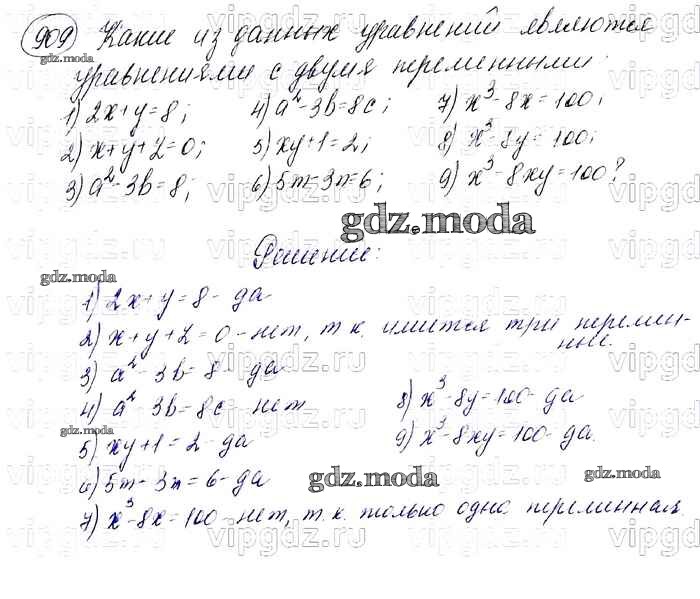 909 Какие из данных уравнений являются
уравнениями с двумя переменными:
1) 2x+y=8; 4) a²-3b=8c; 7) x³-8x=100;
2) x+y+z=0; 5) xy+1=2; 8) x³-8y=100;
3) a²-3b=8; 6) 5m-3n=6; 9) x³-8xy=100?
gdz.moda
Решение:
1) 2x+y=8- да
2) x+y+z=0-нет, т.к. имеется три перемен-
ные.
3) a²-3b=8- да
4) a²-3b=8c-нет
5) xy+1=2-да
6) 5m-3n=6-да
7) x³-8x=100-нет, т.к. только одна переменная.
8) x³-8y=100-да
9) x³-8xy=100-да.
gdz.moda
gdz.moda
gdz.moda
gdz.moda
gdz.moda
vipgdz.ru